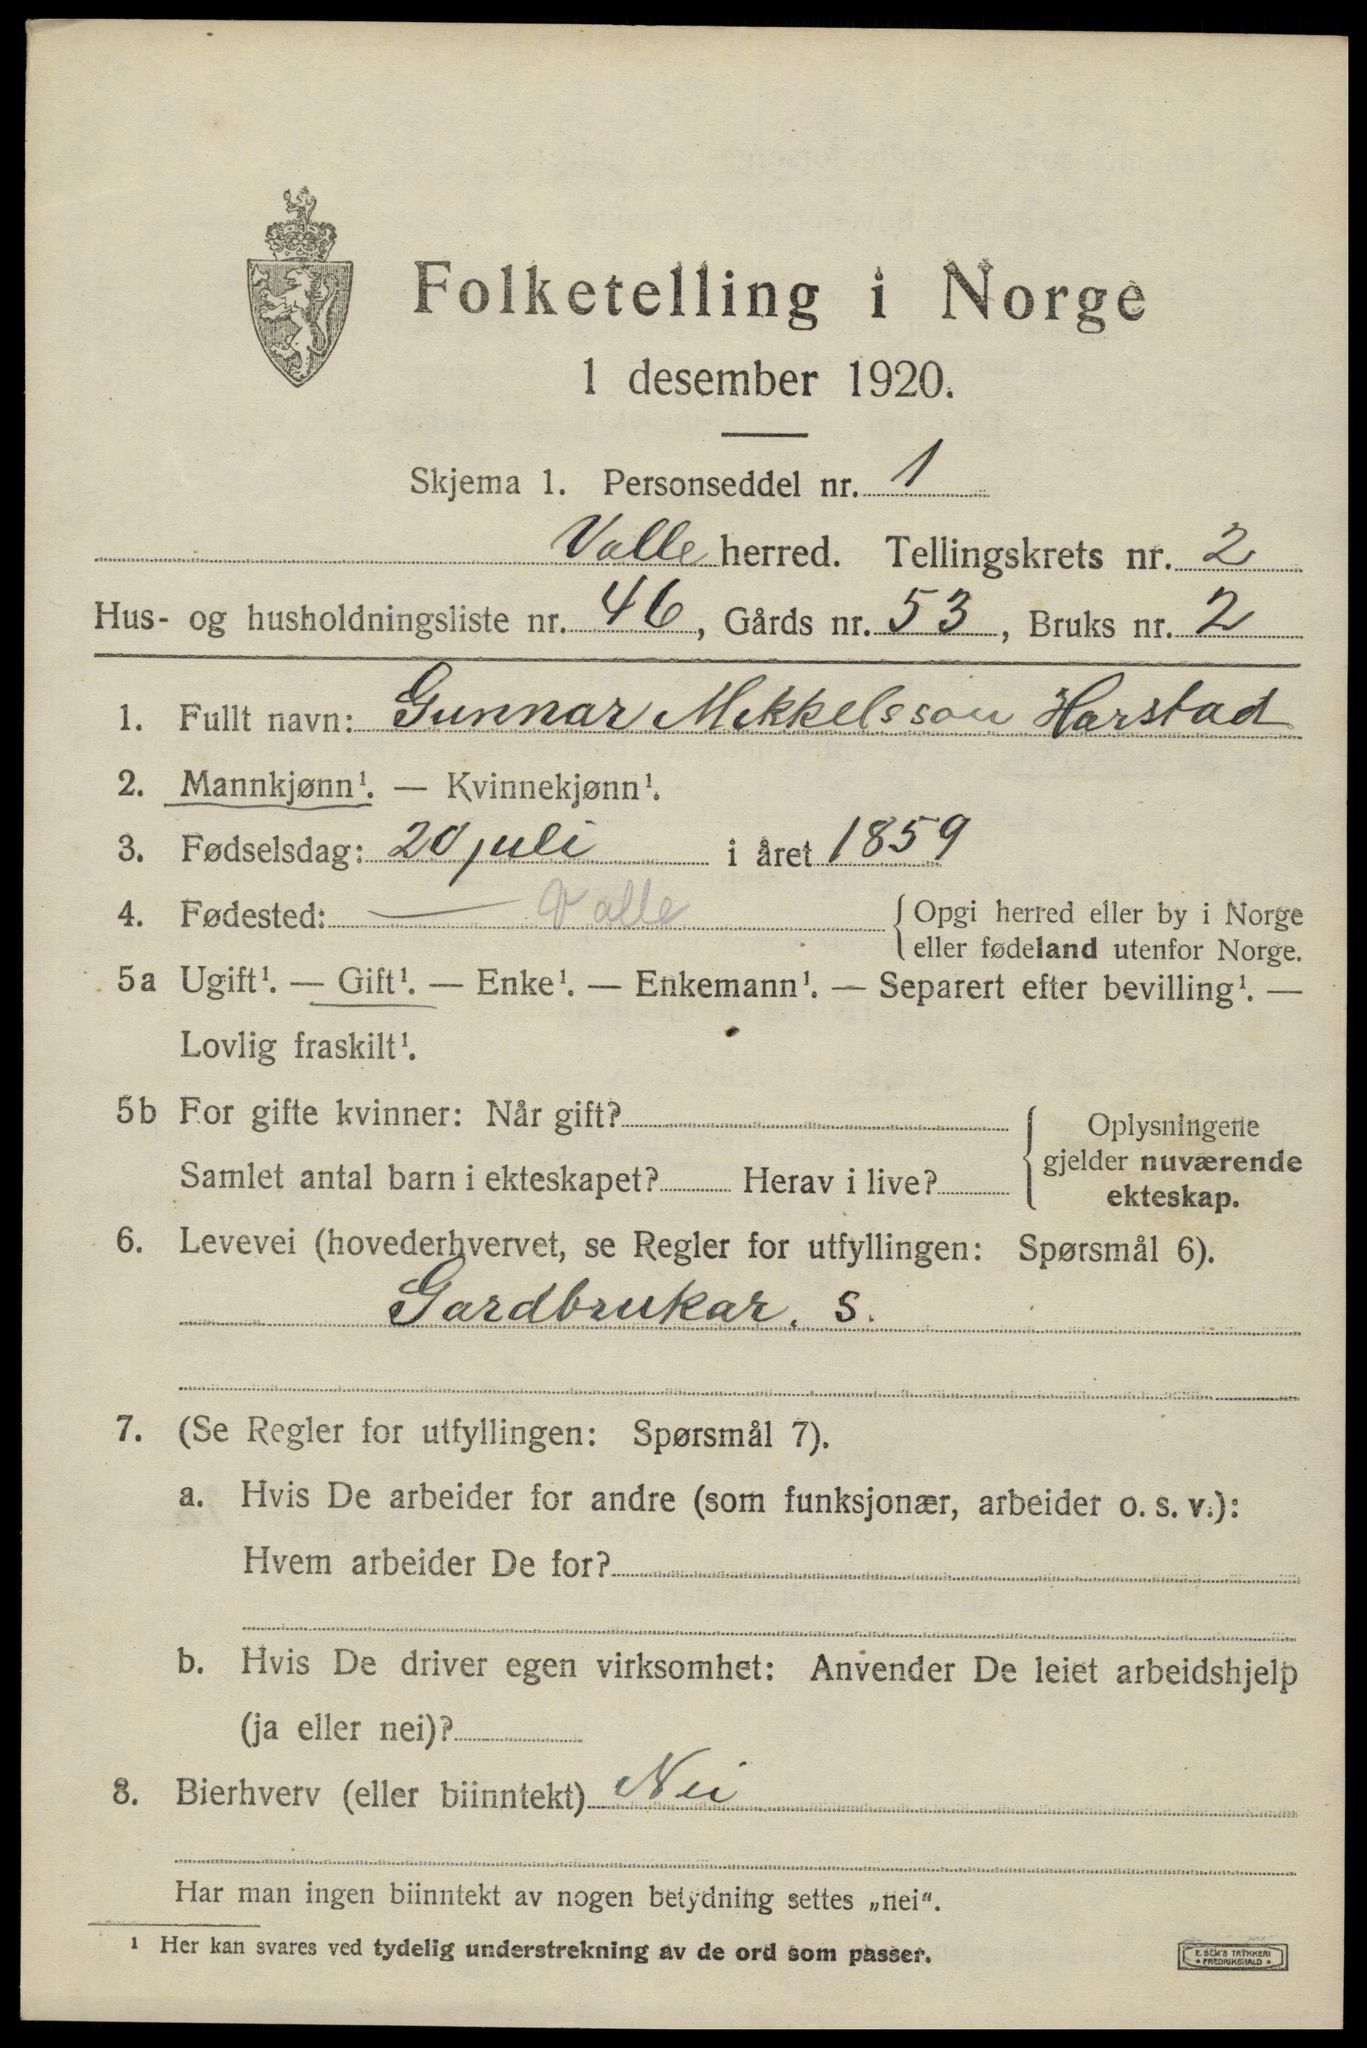 Folketelling i Norge
1 desember 1920.
Skjema 1. Personseddel nr. 1
Valle herred. Tellingskrets nr. 2
Hus- og husholdningsliste nr. 46, Gårds nr. 53, Bruks nr. 2
1. Fullt navn: Gunnar Mikkelsson Harstad
2. Mannkjønn¹. — Kvinnekjønn¹.
3. Fødselsdag: 20 juli i året 1859
4. Fødested: — Valle { Opgi herred eller by i Norge
eller fødeland utenfor Norge.
5a Ugift¹. — Gift¹. — Enke¹. — Enkemann¹. — Separert efter bevilling¹. —
Lovlig fraskilt¹.
5b For gifte kvinner: Når gift?
Samlet antal barn i ekteskapet? Herav i live?
Oplysningene
gjelder nuværende
ekteskap.
6. Levevei (hovederhvervet, se Regler for utfyllingen: Spørsmål 6).
Gardbrukar. s.
7. (Se Regler for utfyllingen: Spørsmål 7).
a. Hvis De arbeider for andre (som funksjonær, arbeider o. s. v.):
Hvem arbeider De for?
b. Hvis De driver egen virksomhet: Anvender De leiet arbeidshjelp
(ja eller nei)?
8. Bierhverv (eller biinntekt) Nei
Har man ingen biinntekt av nogen betydning settes „nei“.
¹ Her kan svares ved tydelig understrekning av de ord som passer.
E. SEM'S TRYKKERI
* FREDRIKSHALD *